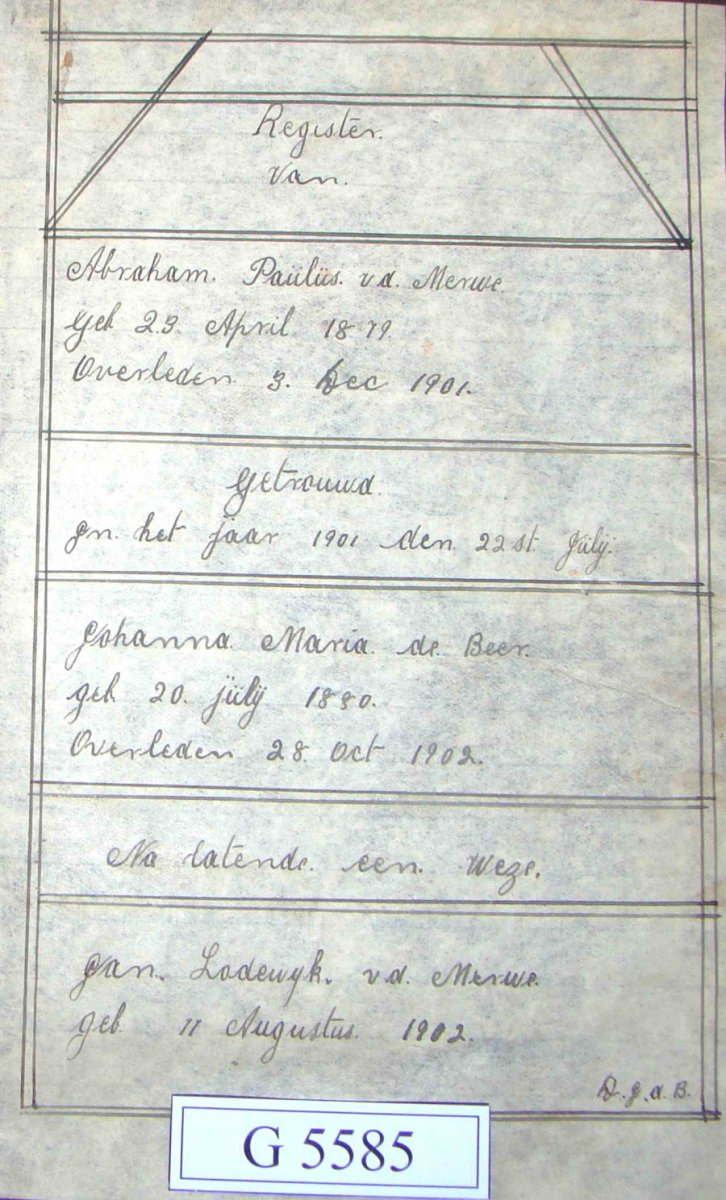 Register.
van.
Abraham. Paulus. v.d. Merwe.
geb 23. April. 1879.
Overleden 3. Dec 1901.
Getrouwd.
In. het jaar 1901 den. 22st. Julij.
Johanna. Maria. de. Beer.
geb. 20. julij 1880.
Overleden 28. Oct 1902.
Na latende. een. Weze.
Jan. Lodewyk. v.d. Merwe.
geb 11 Augustus. 1902.
D.J.d.B.
G 5585